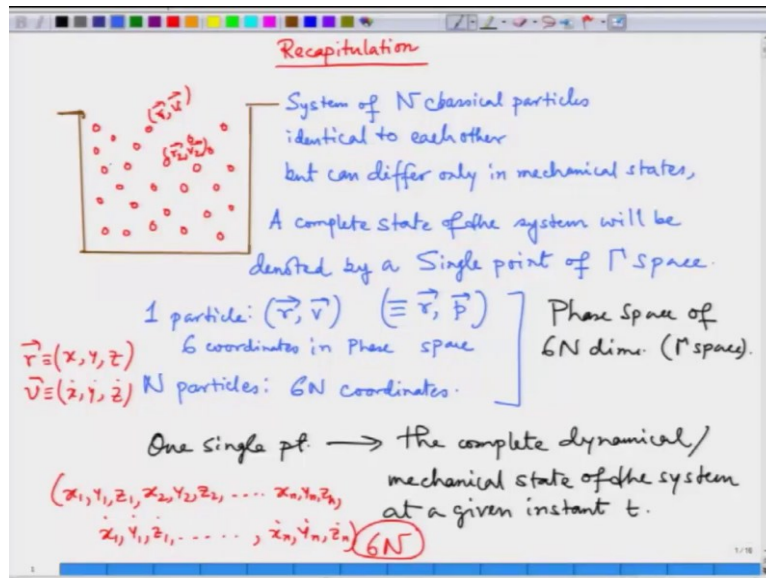 Recapitulation
(r⃗, v⃗)
System of N classical particles
identical to each other
but can differ only in mechanical states,
A complete state of the system will be
denoted by a Single point of Γ space.
1 particle: (r⃗, v⃗) (≡ r⃗, p⃗)
6 coordinates in Phase space
N particles: 6N coordinates.
Phase Space of
6N dims. (Γ space).
r⃗ ≡ (x, y, z)
v⃗ ≡ (ẋ, ẏ, ż)
One single pt. → the complete dynamical/
mechanical state of the system
at a given instant t.
(x₁, y₁, z₁, x₂, y₂, z₂, .... xₙ, yₙ, zₙ,
ẋ₁, ẏ₁, ż₁, ......, ẋₙ, ẏₙ, żₙ) 6N
1